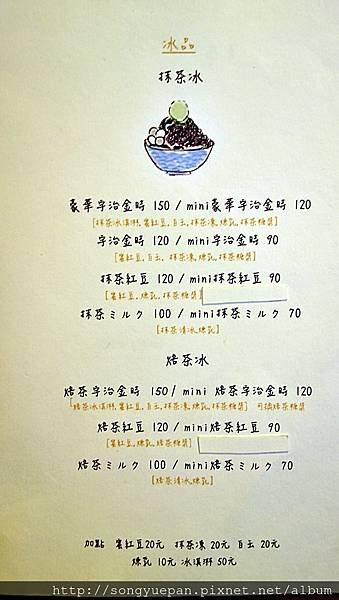 冰品
抹茶冰
豪華宇治金時 150 / mini豪華宇治金時 120
[抹茶冰淇淋.蜜紅豆.白玉.抹茶凍.煉乳.抹茶糖漿]
宇治金時 120 / mini宇治金時 90
[蜜紅豆.白玉.抹茶凍.煉乳.抹茶糖漿]
抹茶紅豆 120 / mini抹茶紅豆 90
[蜜紅豆.煉乳.抹茶糖漿]
抹茶ミルク 100 / mini抹茶ミルク 70
[抹茶清冰煉乳]
焙茶冰
焙茶宇治金時 150 / mini 焙茶宇治金時 120
[焙茶冰淇淋.蜜紅豆.白玉.抹茶凍.煉乳.抹茶糖漿] 可換焙茶糖漿
焙茶紅豆 120 / mini焙茶紅豆 90
[蜜紅豆.煉乳.焙茶糖漿]
焙茶ミルク 100 / mini焙茶ミルク 70
[焙茶清冰煉乳]
加點 蜜紅豆20元 抹茶凍 20元 白玉 20元
煉乳 10元 冰淇淋 50元
http://songyuepan.pixnet.net/album